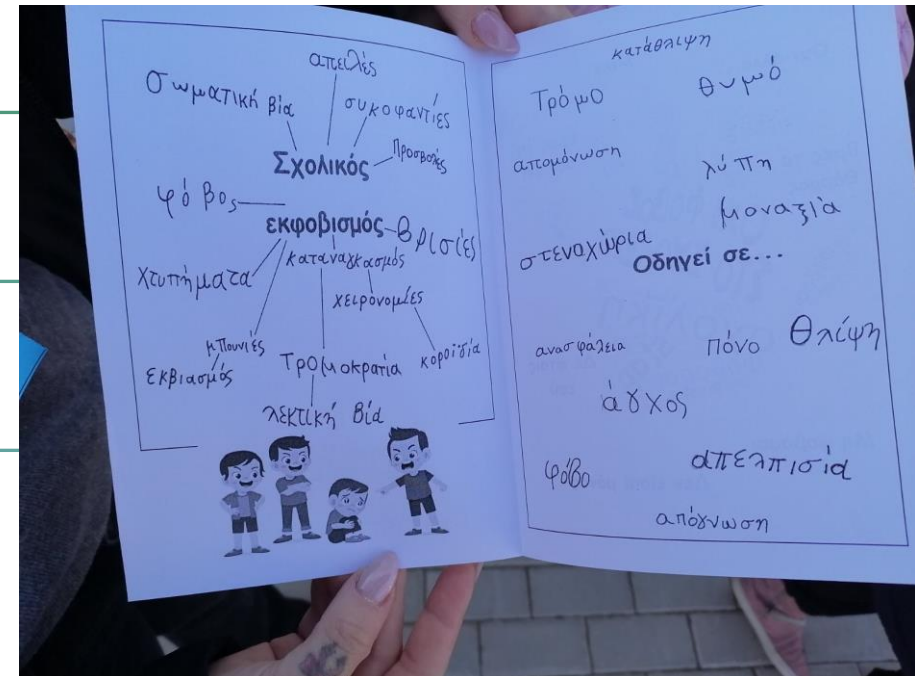 απειλές
Σωματική βία
συκοφαντίες
Σχολικός
Προσβολές
φόβος
εκφοβισμός
βρισιές
καταναγκασμός
χτυπήματα
χειρονομίες
μπουνιές
εκβιασμός
Τρομοκρατία
κοροϊδία
λεκτική βία
κατάθλιψη
Τρόμο
θυμό
απομόνωση
λύπη
μοναξιά
στενοχώρια
Οδηγεί σε...
ανασφάλεια
πόνο
Θλίψη
άγχος
φόβο
απελπισία
απόγνωση